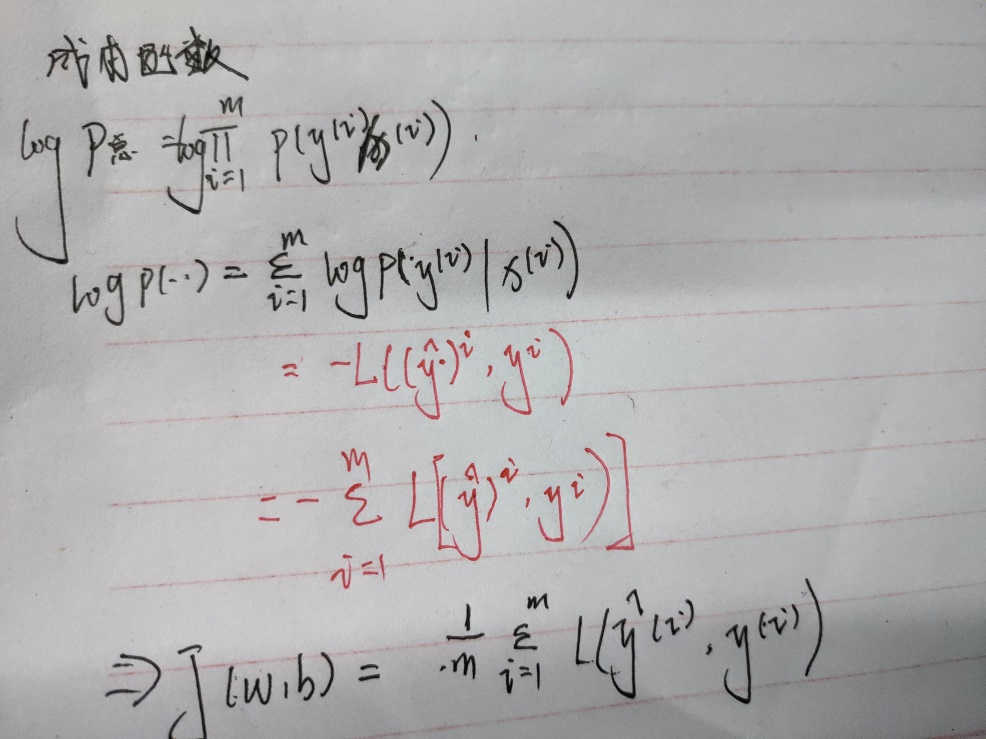 成本函数
log P总 = log ∏_{i=1}^{m} P(y^{(i)}|x^{(i)}).
log P(..) = Σ_{i=1}^{m} log P(y^{(i)} | x^{(i)})
= -L((ŷ)^i, y^i)
= - Σ_{i=1}^{m} L[(ŷ)^i, y^i)]
⇒ J(w,b) = 1/m Σ_{i=1}^{m} L(ŷ^{(i)}, y^{(i)})